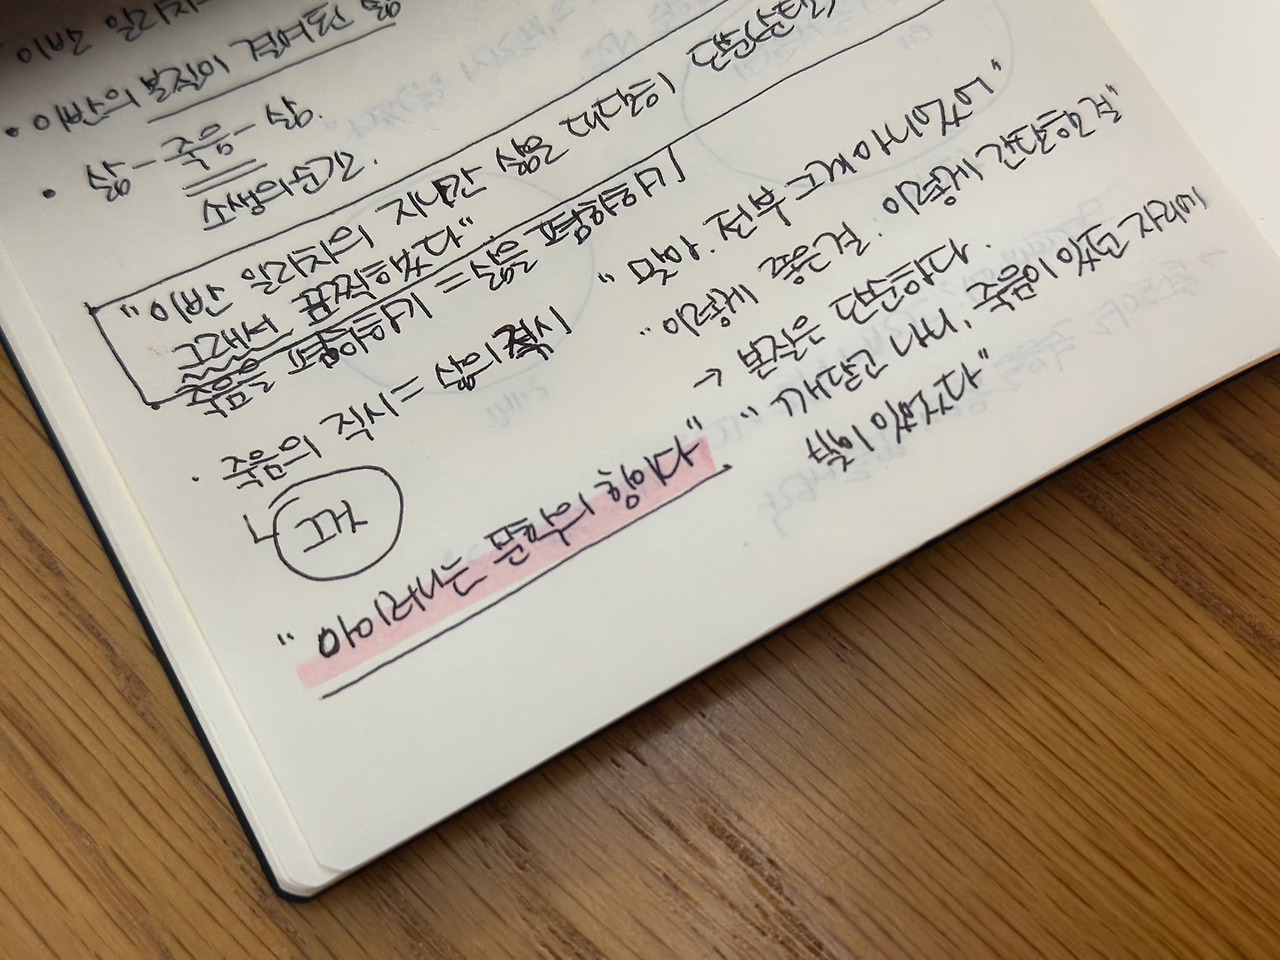 이반 일리치
• 이반의 본질이 결여된 삶
• 삶 - 죽음 - 삶.
소생의 순간.
"이반 일리치의 지나간 삶은 대단히 단순
그래서 끔찍했다"
죽음을 폄하하기 = 삶을 폄하하기
• 죽음의 직시 = 삶의 직시
그거
"아이러니는 문학의 힘이다"
"맞아. 전부 그게 아니었어"
"이렇게 좋은 걸. 이렇게 간단한 걸"
→ 본질은 단순하다.
"깨닫고 나니, 죽음이 있던 자리에
빛이 있었다"